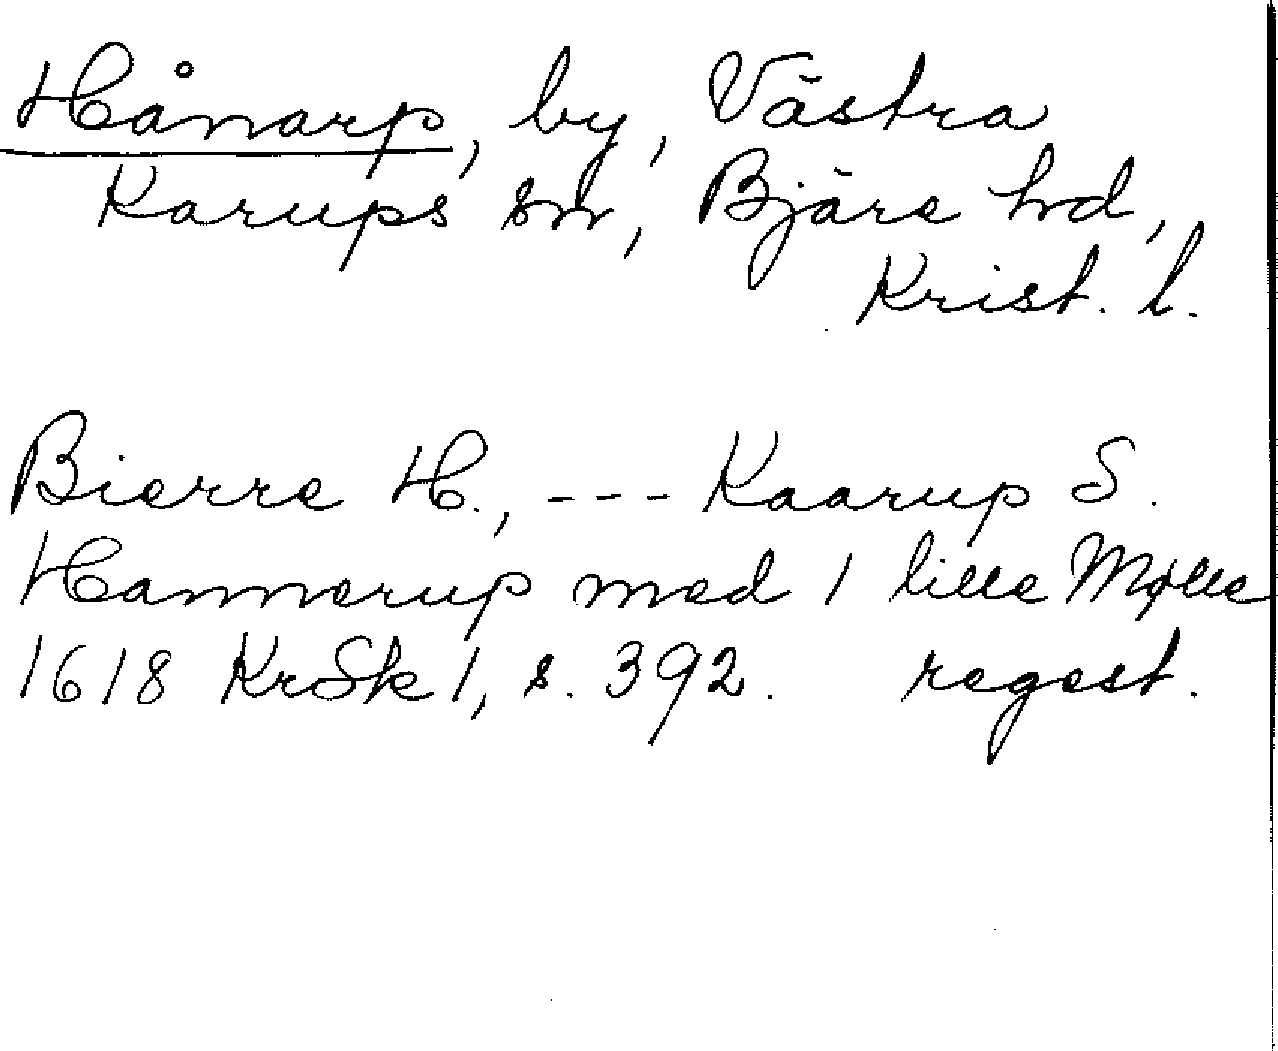 Hånarp, by, Västra
Karups sn, Bjäre hd,
Krist. l.
Bierre H., --- Kaarup S.
Hannerup med 1 lille Mølle
1618 KrSk 1, s. 392. regest.